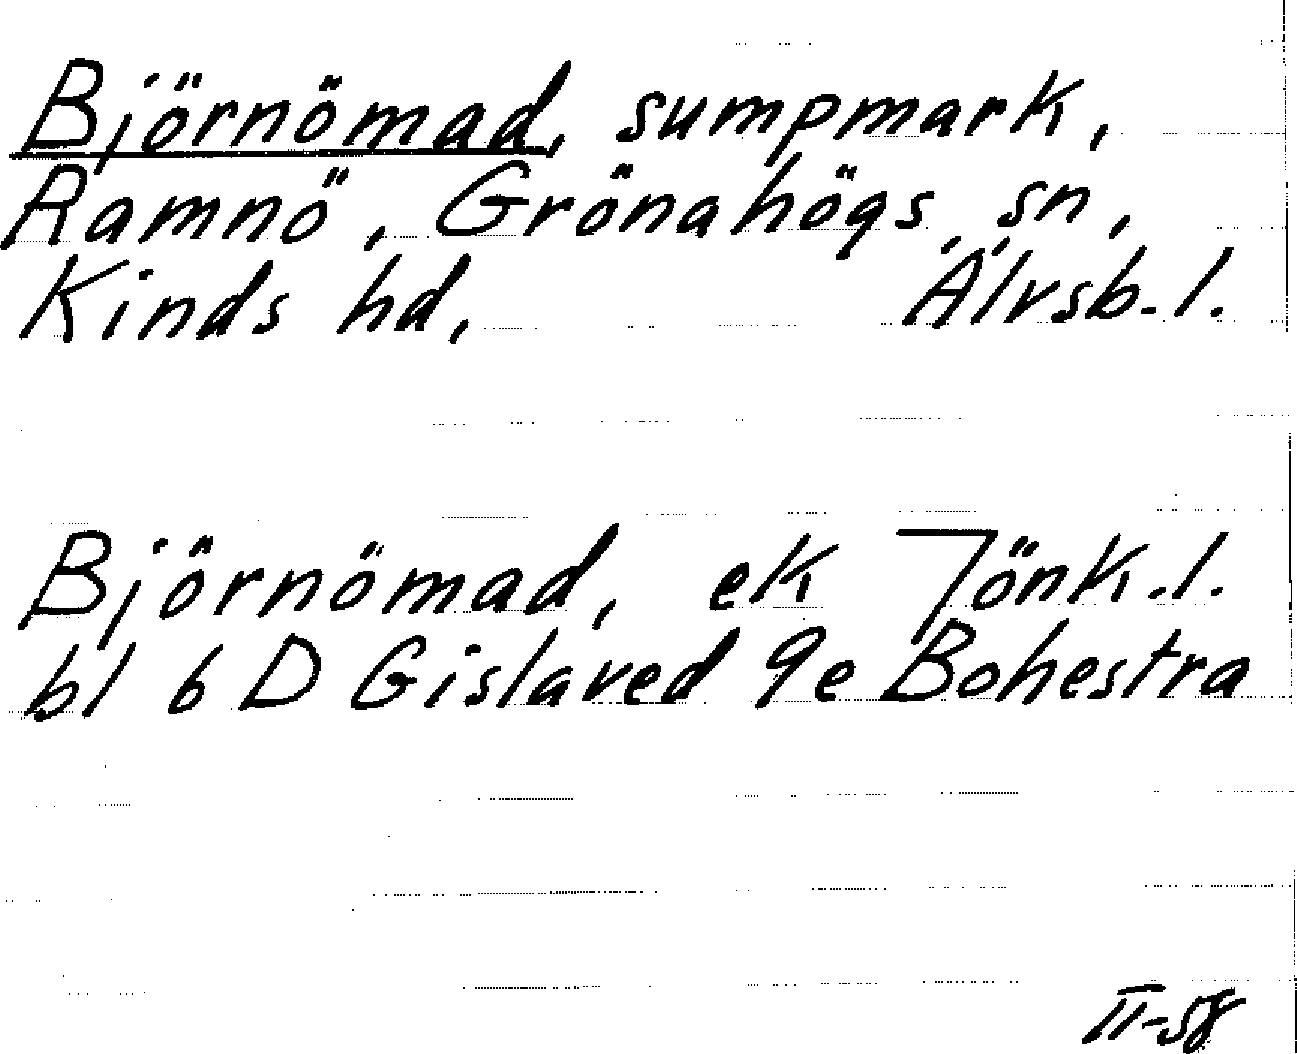 Björnömad, sumpmark,
Ramnö, Grönahögs sn,
Kinds hd, Älvsb.l.
Björnömad, ek Jönk.l.
bl 6 D Gislaved 9e Bohestra
II-58